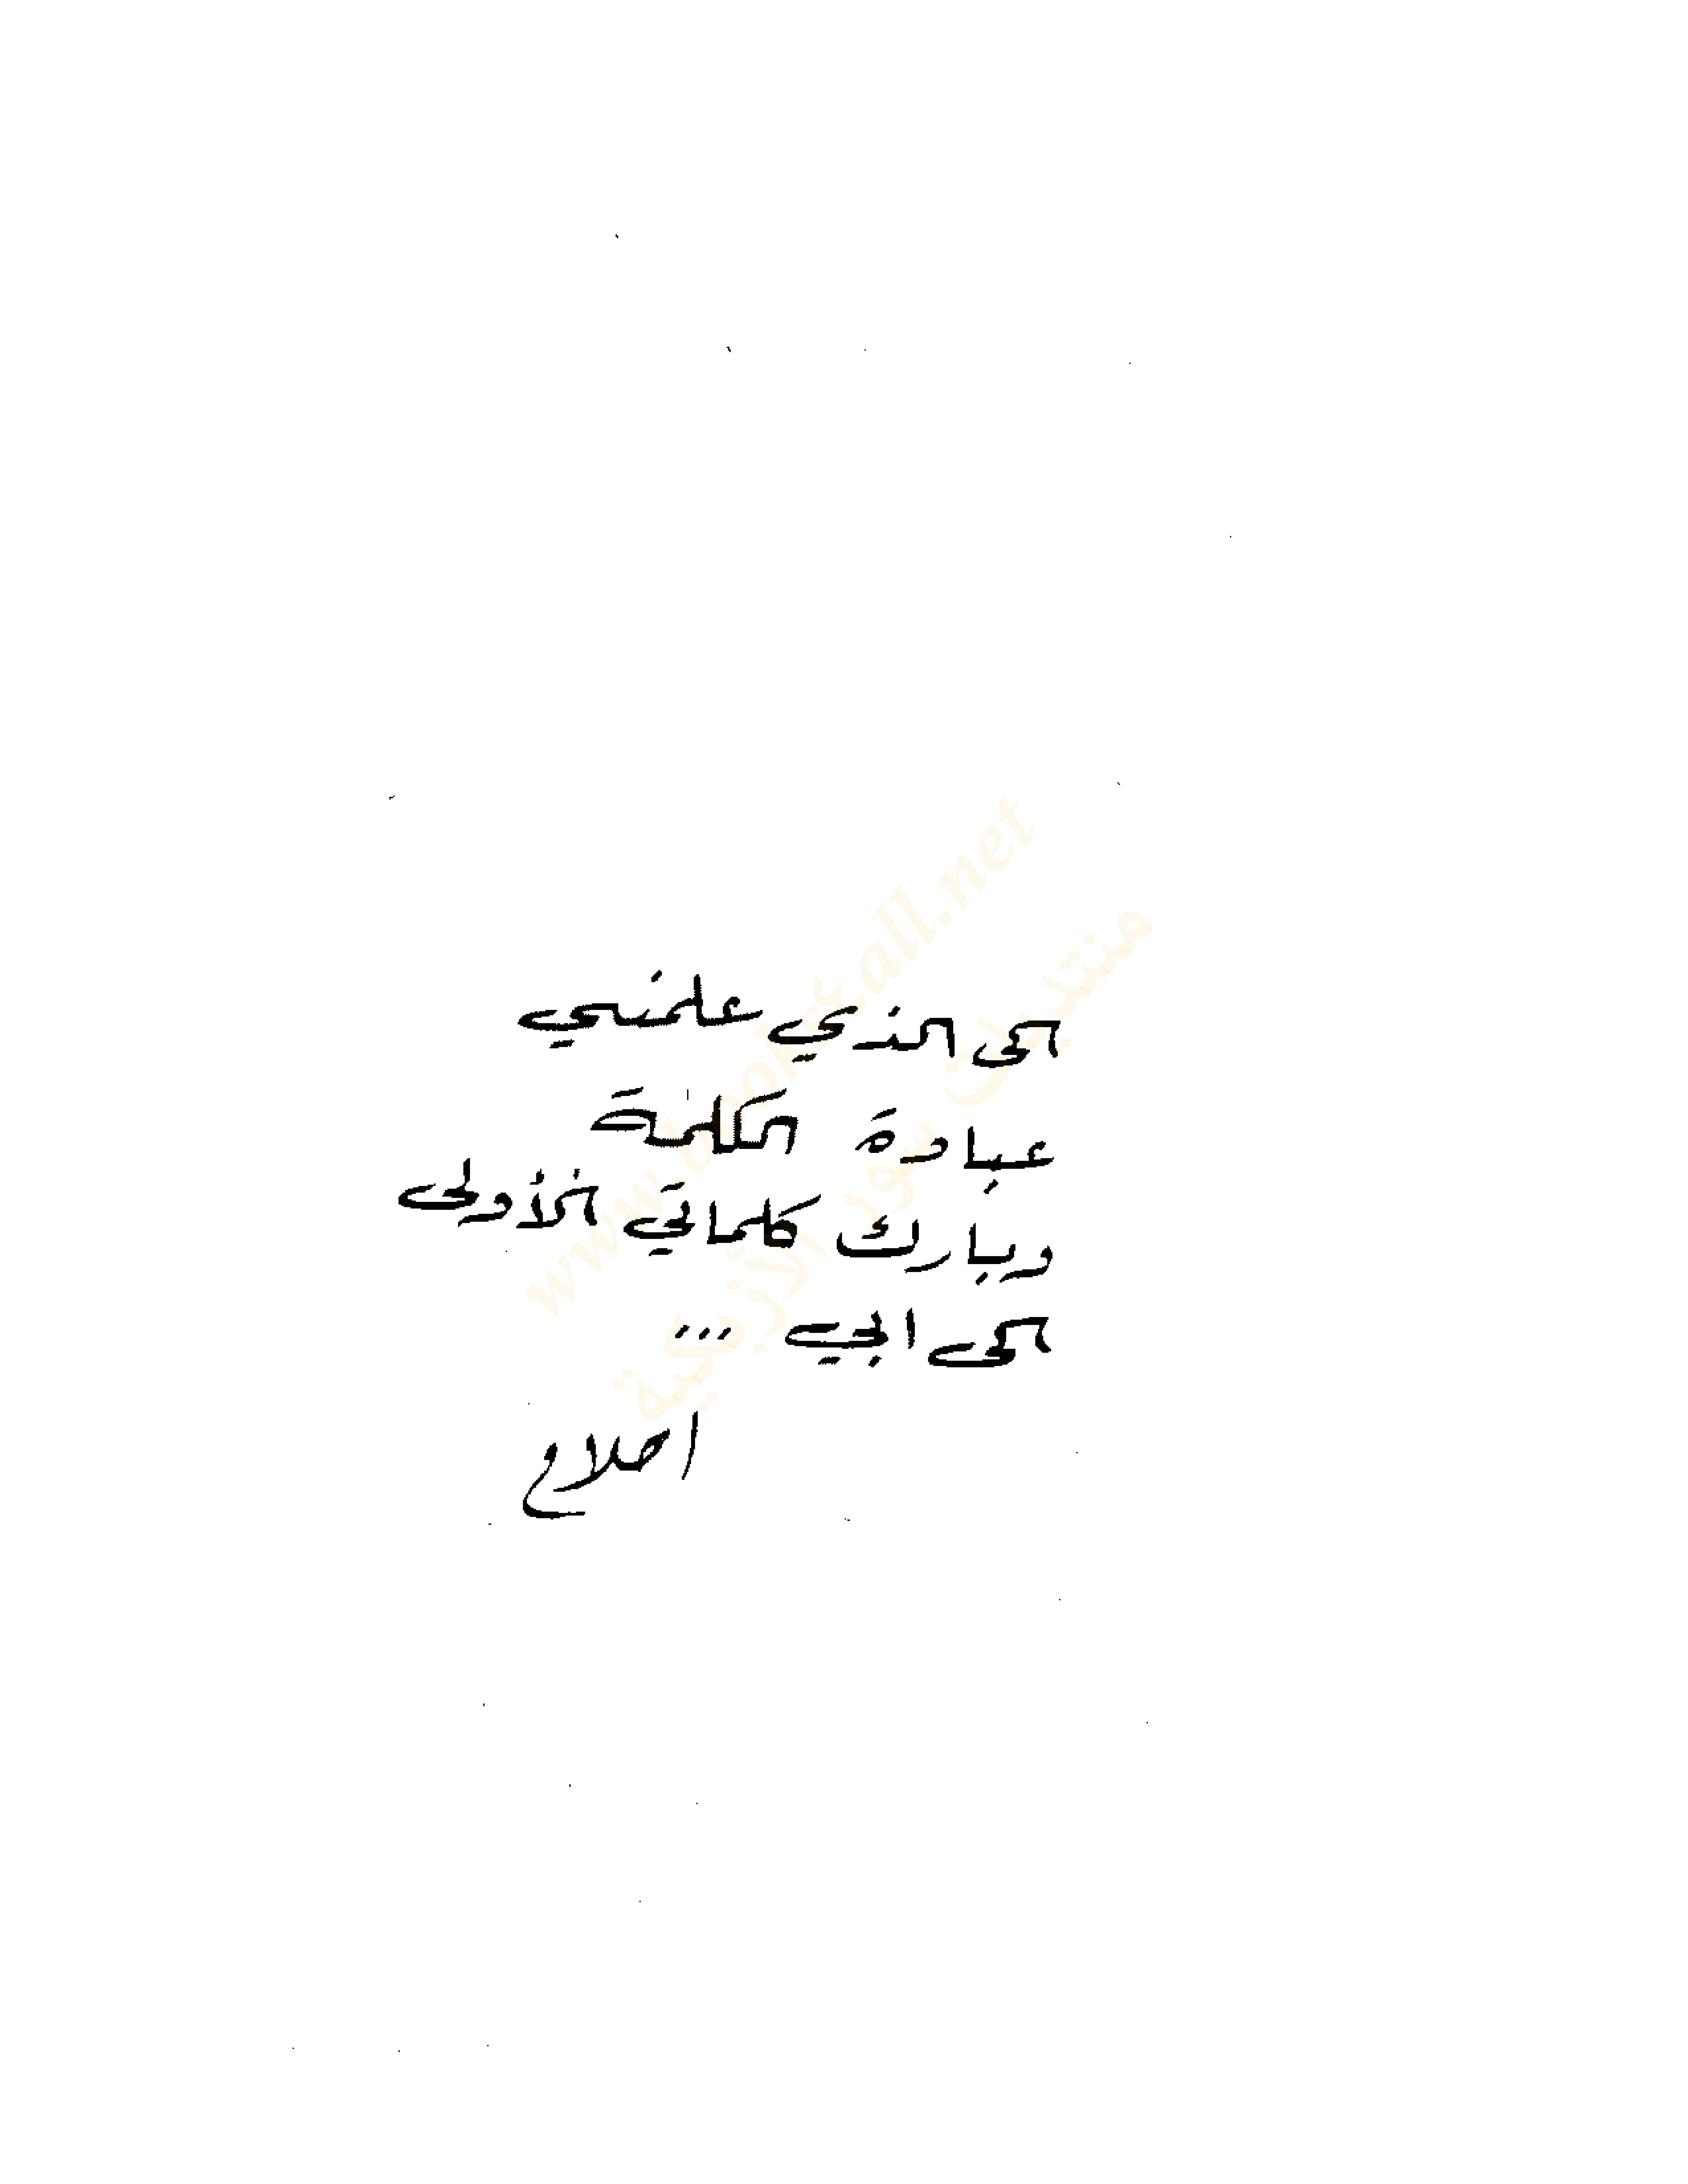 الى الذي علمني
عبادة الكلمة
وبارك كلماتي الأولى
الى ابي ...
احلام
www.books4all.net
منتديات سور الأزبكية